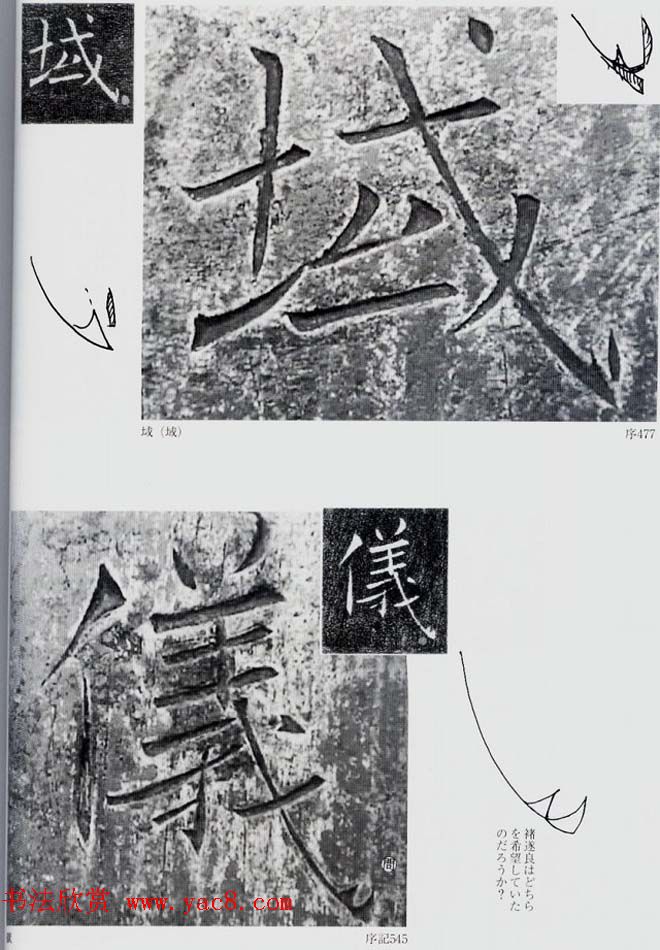 域
域
域（域）
序477
儀
儀
間
褚遂良はどちら
を希望していた
のだろうか？
书法欣赏 www.yac8.com
序記545